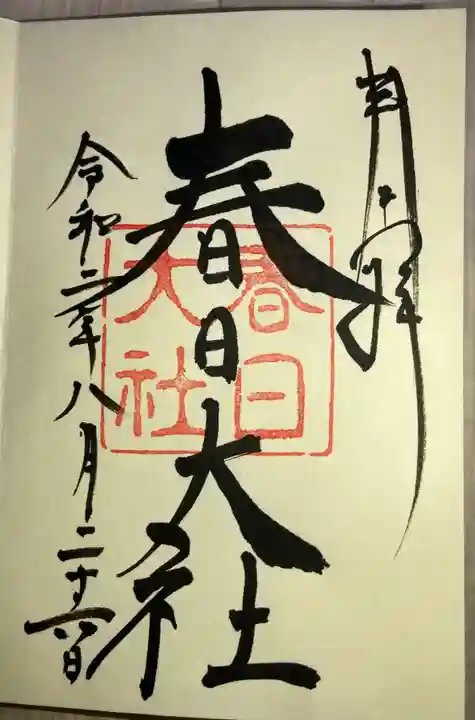 春日大社
令和二年八月二十六日
春日
大社